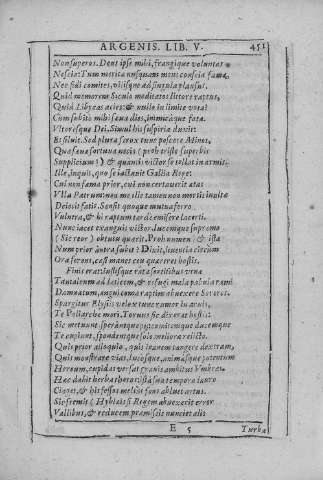 ARGENIS. LIB. V. 451
Non superos. Dent ipse mihi, frangique voluntas
Nescia: Tum merita nusquam mens conscia fama.
Nec fidi comites, vilisque ad singula plausus.
Quid memorem Siculo meditatos littore raptus,
Quid Libycas acies: & nullo in limite vota?
Cum subito mihi saeva dies, inimicaque fata.
Vltoresque Dei. Simul his suspiria duxit:
Et siluit. Sed plura ferox tunc poscere Minos,
Qua seva fortuna necis (proh triste superbis
Supplicium!) & quantis victor se tollat in armis.
Ille, inquit, quo se iactanit Gallia Rege:
Cui non fama prior, cui non certaverit atas
Vlla Patrum: nec me ille tamen non mortis inulta
Deiecit fatis. Sensit quoque mutua ferro
Vulnera, & hi raptum tarde misere lacerti.
Nunc iacet exanguis victor: lucemque supremo
(Sic reor) obtutu quarit. Proh numen & ista
Num prior antra subit? Dixit, inventa circum
Ora ferens, casi manes ceu quareret hostis.
Finis erat: iustisque rata sortitibus vena
Tantaleum ad laticem, & refugi mala pabula rami
Damnatum, angui comaraptim abuexere Sorores.
Spargitur Elysiis velox tunc rumor in antris,
Te Poliarche mori. Tornus se dixerat hostis:
Sic metuunt sperantque
Te cupiunt, spondentque solo meliora relicto.
Quis prior alloquio, quis inanem tangere dextram,
Quis monstrare vias, lucosque, animasque potentum
Heroum, cupidas versat gravis ambitus Vmbras.
Hac dabit herba thoros: ista tua tempora lauro
Cinges, & his fessus melius fons abluet artus.
Sic fremis (Hyblais si Regem abvexerit error
Vallibus, & reducem pramisit nuncius alis
E 5 Turba